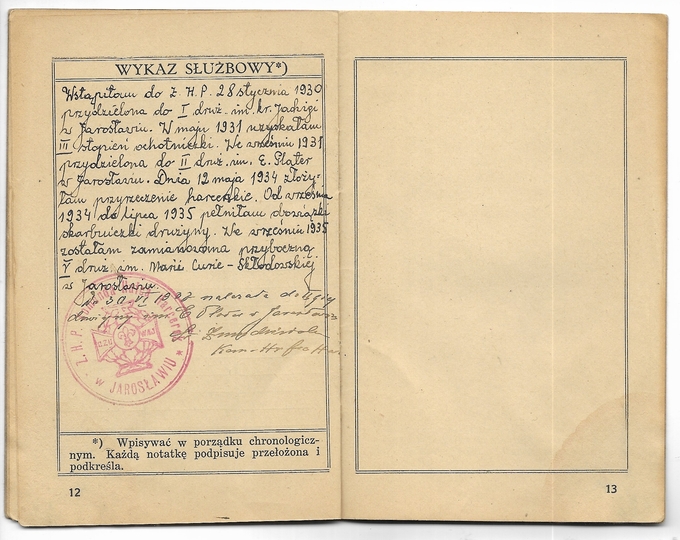 WYKAZ SŁUŻBOWY*)
Wstąpiłam do Z. H. P. 28 stycznia 1930
przydzielona do I druż. im. kr. Jadwigi
w Jarosławiu. W maju 1931 uzyskałam
III stopień ochotniczki. We wrześniu 1931
przydzielona do II druż. im. E. Plater
w Jarosławiu. Dnia 12 maja 1934 złoży-
łam przyrzeczenie harcerskie. Od września
1934 do lipca 1935 pełniłam obowiązki
skarbniczki drużyny. We wrześniu 1935
zostałam zamianowana przyboczną
V druż. im. Marii Curie-Skłodowskiej
w Jarosławiu
30 VI 1938 należała do
drużyny im. E Plater w Jarosławiu
Z. H. P.
CZU WAJ
W JAROSŁAWIU
*) Wpisywać w porządku chronologicz-
nym. Każdą notatkę podpisuje przełożona i
podkreśla.
12
13